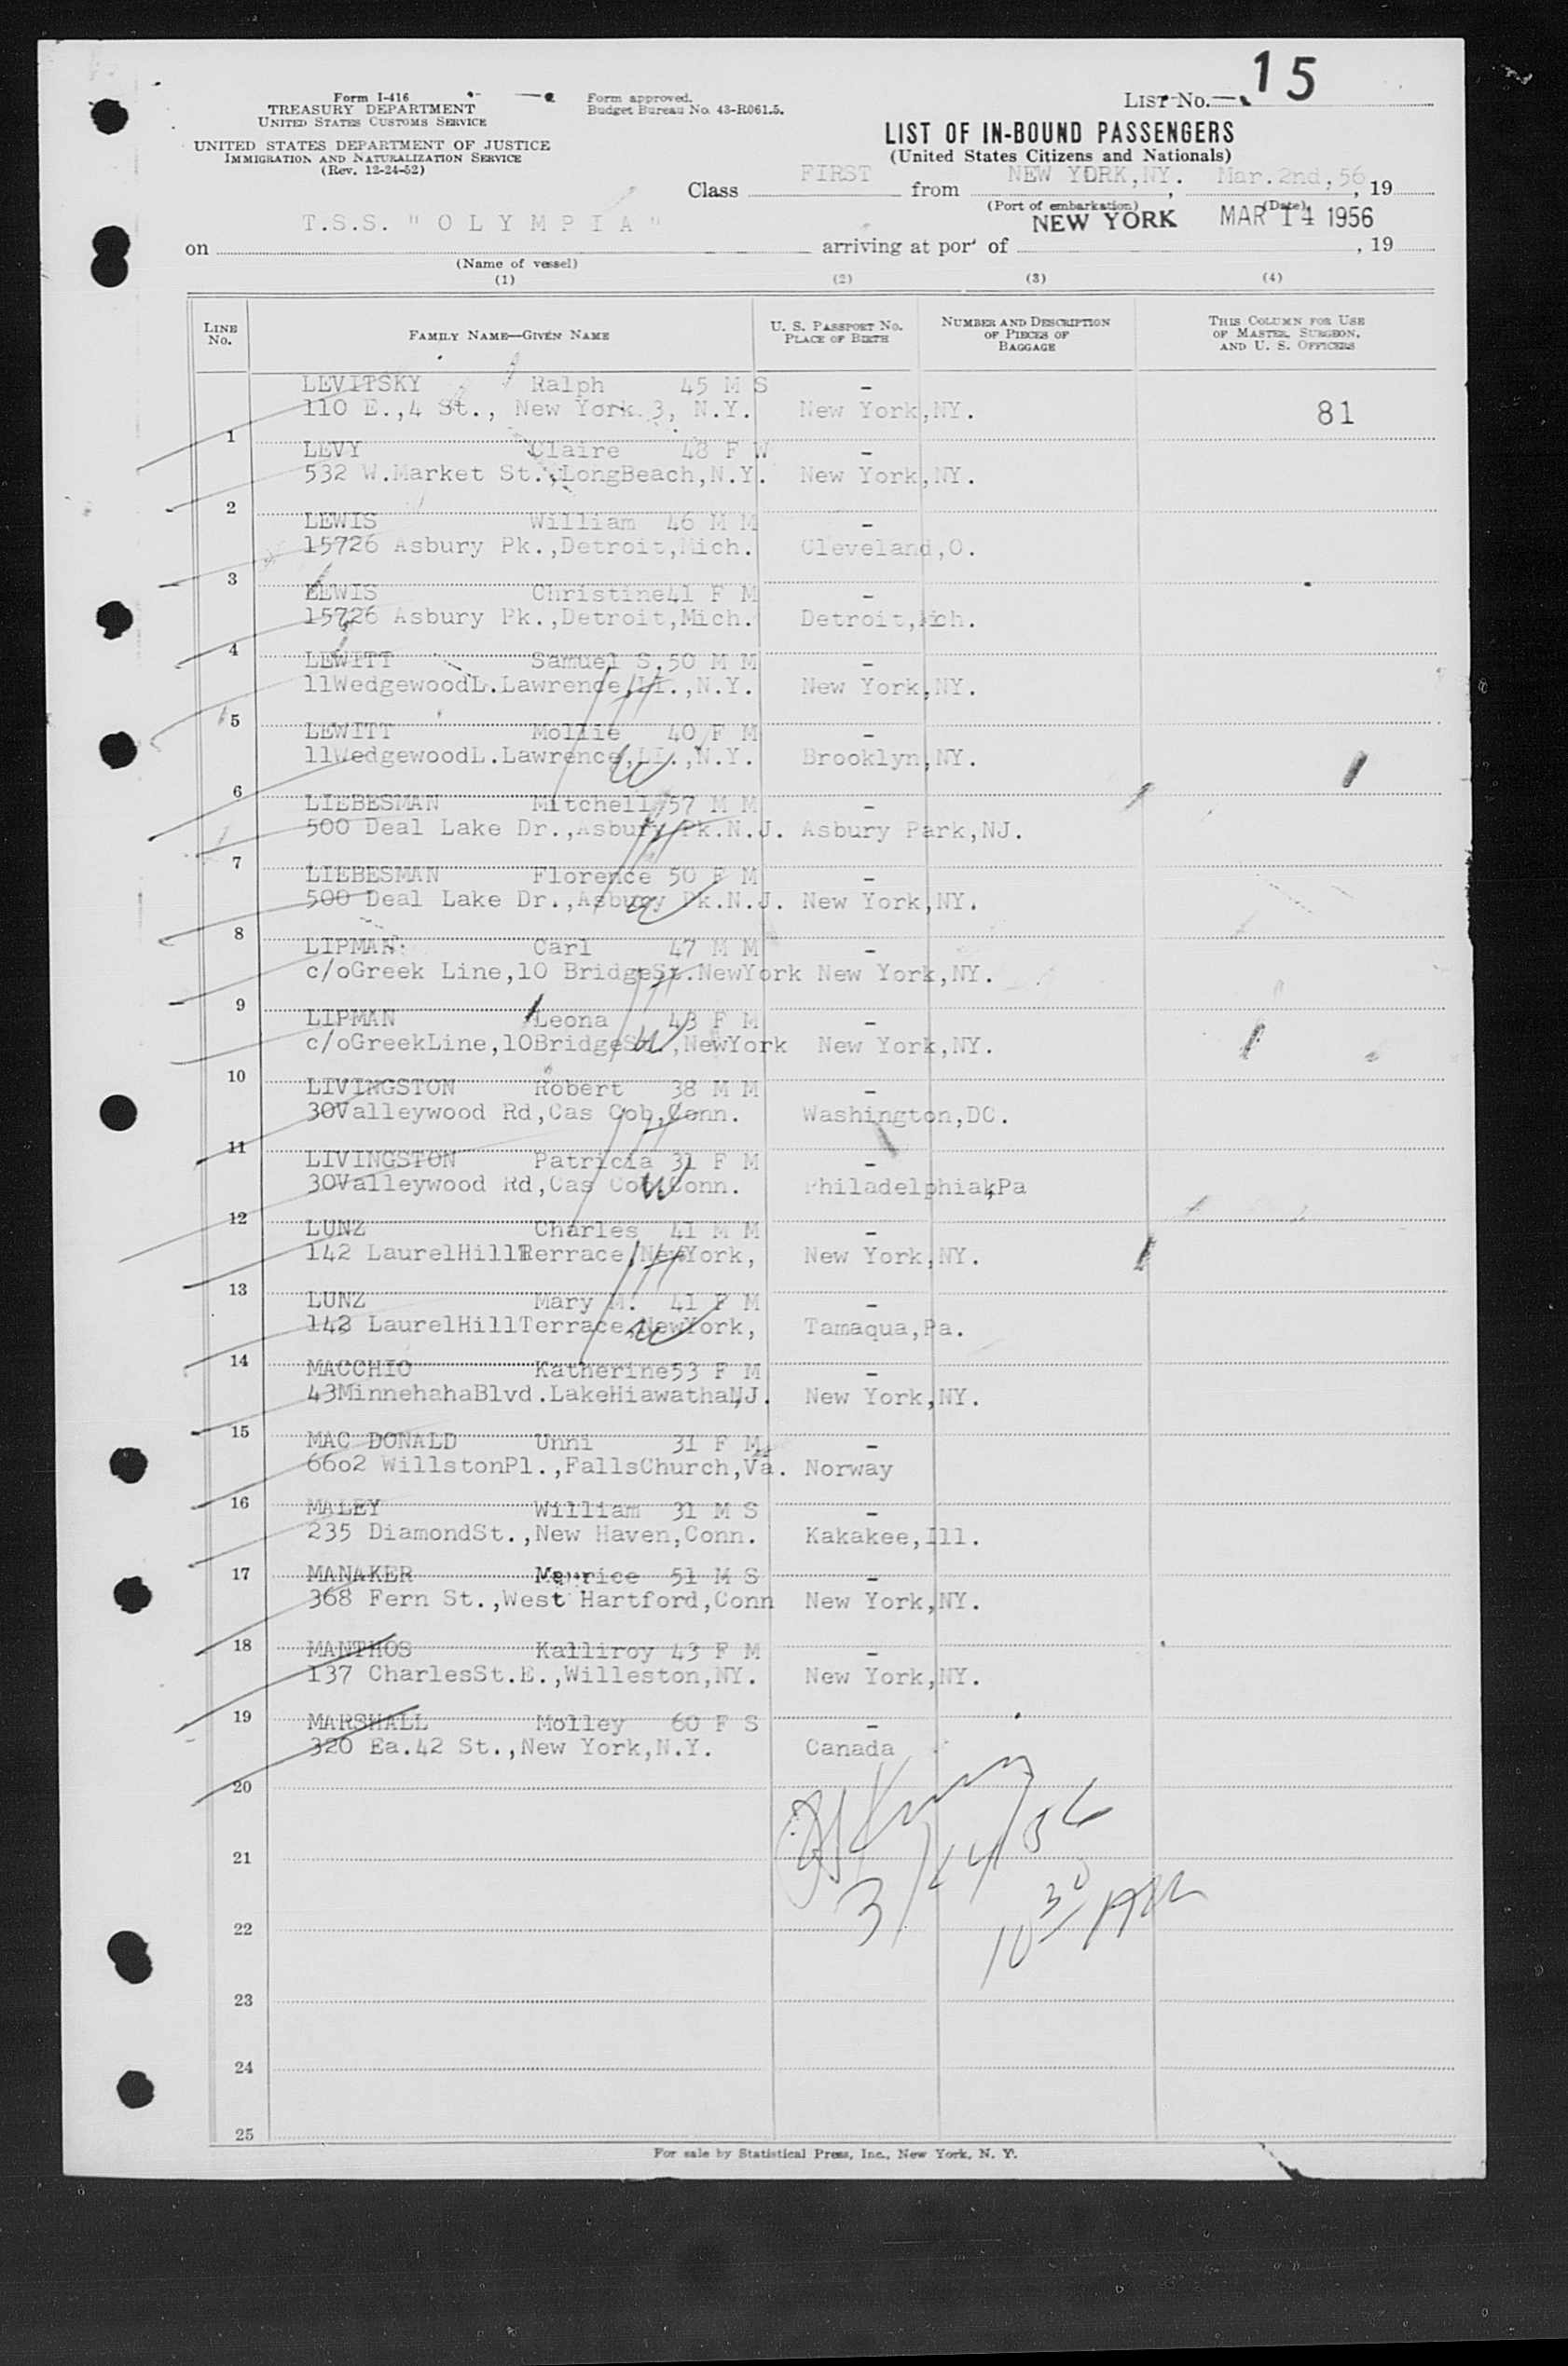 15
Form I-416
TREASURY DEPARTMENT
UNITED STATES CUSTOMS SERVICE
UNITED STATES DEPARTMENT OF JUSTICE
IMMIGRATION AND NATURALIZATION SERVICE
(Rev. 12-24-52)
Form approved.
Budget Bureau No. 43-R061.5.
LIST No.
LIST OF IN-BOUND PASSENGERS
(United States Citizens and Nationals)
Class FIRST from NEW YORK,NY. , Mar.2nd,56, 19
(Port of embarkation) (Date)
on T.S.S. "OLYMPIA" arriving at port of NEW YORK MAR 14 1956 , 19
(Name of vessel)
(1) (2) (3) (4)
LINE No. FAMILY NAME—GIVEN NAME U. S. PASSPORT No. PLACE OF BIRTH NUMBER AND DESCRIPTION OF PIECES OF BAGGAGE THIS COLUMN FOR USE OF MASTER, SURGEON, AND U. S. OFFICERS
LEVITSKY Ralph 45 M S -
110 E.,4 St., New York 3, N.Y. New York,NY. 81
1
LEVY Claire 48 F W -
532 W.Market St.,LongBeach,N.Y. New York,NY.
2
LEWIS William 46 M M -
15726 Asbury Pk.,Detroit,Mich. Cleveland,O.
3
LEWIS Christine41 F M -
15726 Asbury Pk.,Detroit,Mich. Detroit,Mich.
4
LEWITT Samuel S.50 M M -
11WedgewoodL.Lawrence,LI.,N.Y. New York,NY.
5
LEWITT Mollie 40 F M -
11WedgewoodL.Lawrence,LI.,N.Y. Brooklyn,NY.
6
LIEBESMAN Mitchell 57 M M -
500 Deal Lake Dr.,Asbury Pk.N.J. Asbury Park,NJ.
7
LIEBESMAN Florence 50 F M -
500 Deal Lake Dr.,Asbury Pk.N.J. New York,NY.
8
LIPMAN Carl 47 M M -
c/oGreek Line,10 BridgeSt.NewYork New York,NY.
9
LIPMAN Leona 43 F M -
c/oGreekLine,10BridgeSt.,NewYork New York,NY.
10
LIVINGSTON Robert 38 M M -
30Valleywood Rd,Cas Cob,Conn. Washington,DC.
11
LIVINGSTON Patricia 31 F M -
30Valleywood Rd,Cas Cob,Conn. Philadelphia,Pa
12
LUNZ Charles 41 M M -
142 LaurelHillTerrace,NewYork, New York,NY.
13
LUNZ Mary M. 41 F M -
142 LaurelHillTerrace,NewYork, Tamaqua,Pa.
14
MACCHIO Katherine53 F M -
43MinnehahaBlvd.LakeHiawatha,NJ. New York,NY.
15
MAC DONALD Unni 31 F M -
66o2 WillstonPl.,FallsChurch,Va. Norway
16
MALEY William 31 M S -
235 DiamondSt.,New Haven,Conn. Kakakee,Ill.
17
MANAKER Maurice 51 M S -
368 Fern St.,West Hartford,Conn New York,NY.
18
MANTHOS Kalliroy 43 F M -
137 CharlesSt.E.,Willeston,NY. New York,NY.
19
MARSHALL Molley 60 F S -
320 Ea.42 St.,New York,N.Y. Canada
20
21
3/14/56
22
10 30 AM
23
24
25
For sale by Statistical Press, Inc., New York, N. Y.